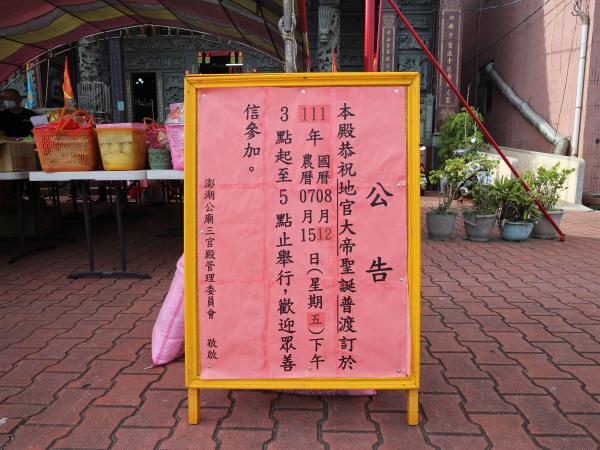 公告
本殿恭祝地官大帝聖誕普渡訂於
111年 國曆08月12日(星期五)下午
農曆07月15
3點起至5點止舉行，歡迎眾善
信參加。
澎湖公廟三官殿管理委員會 敬啟